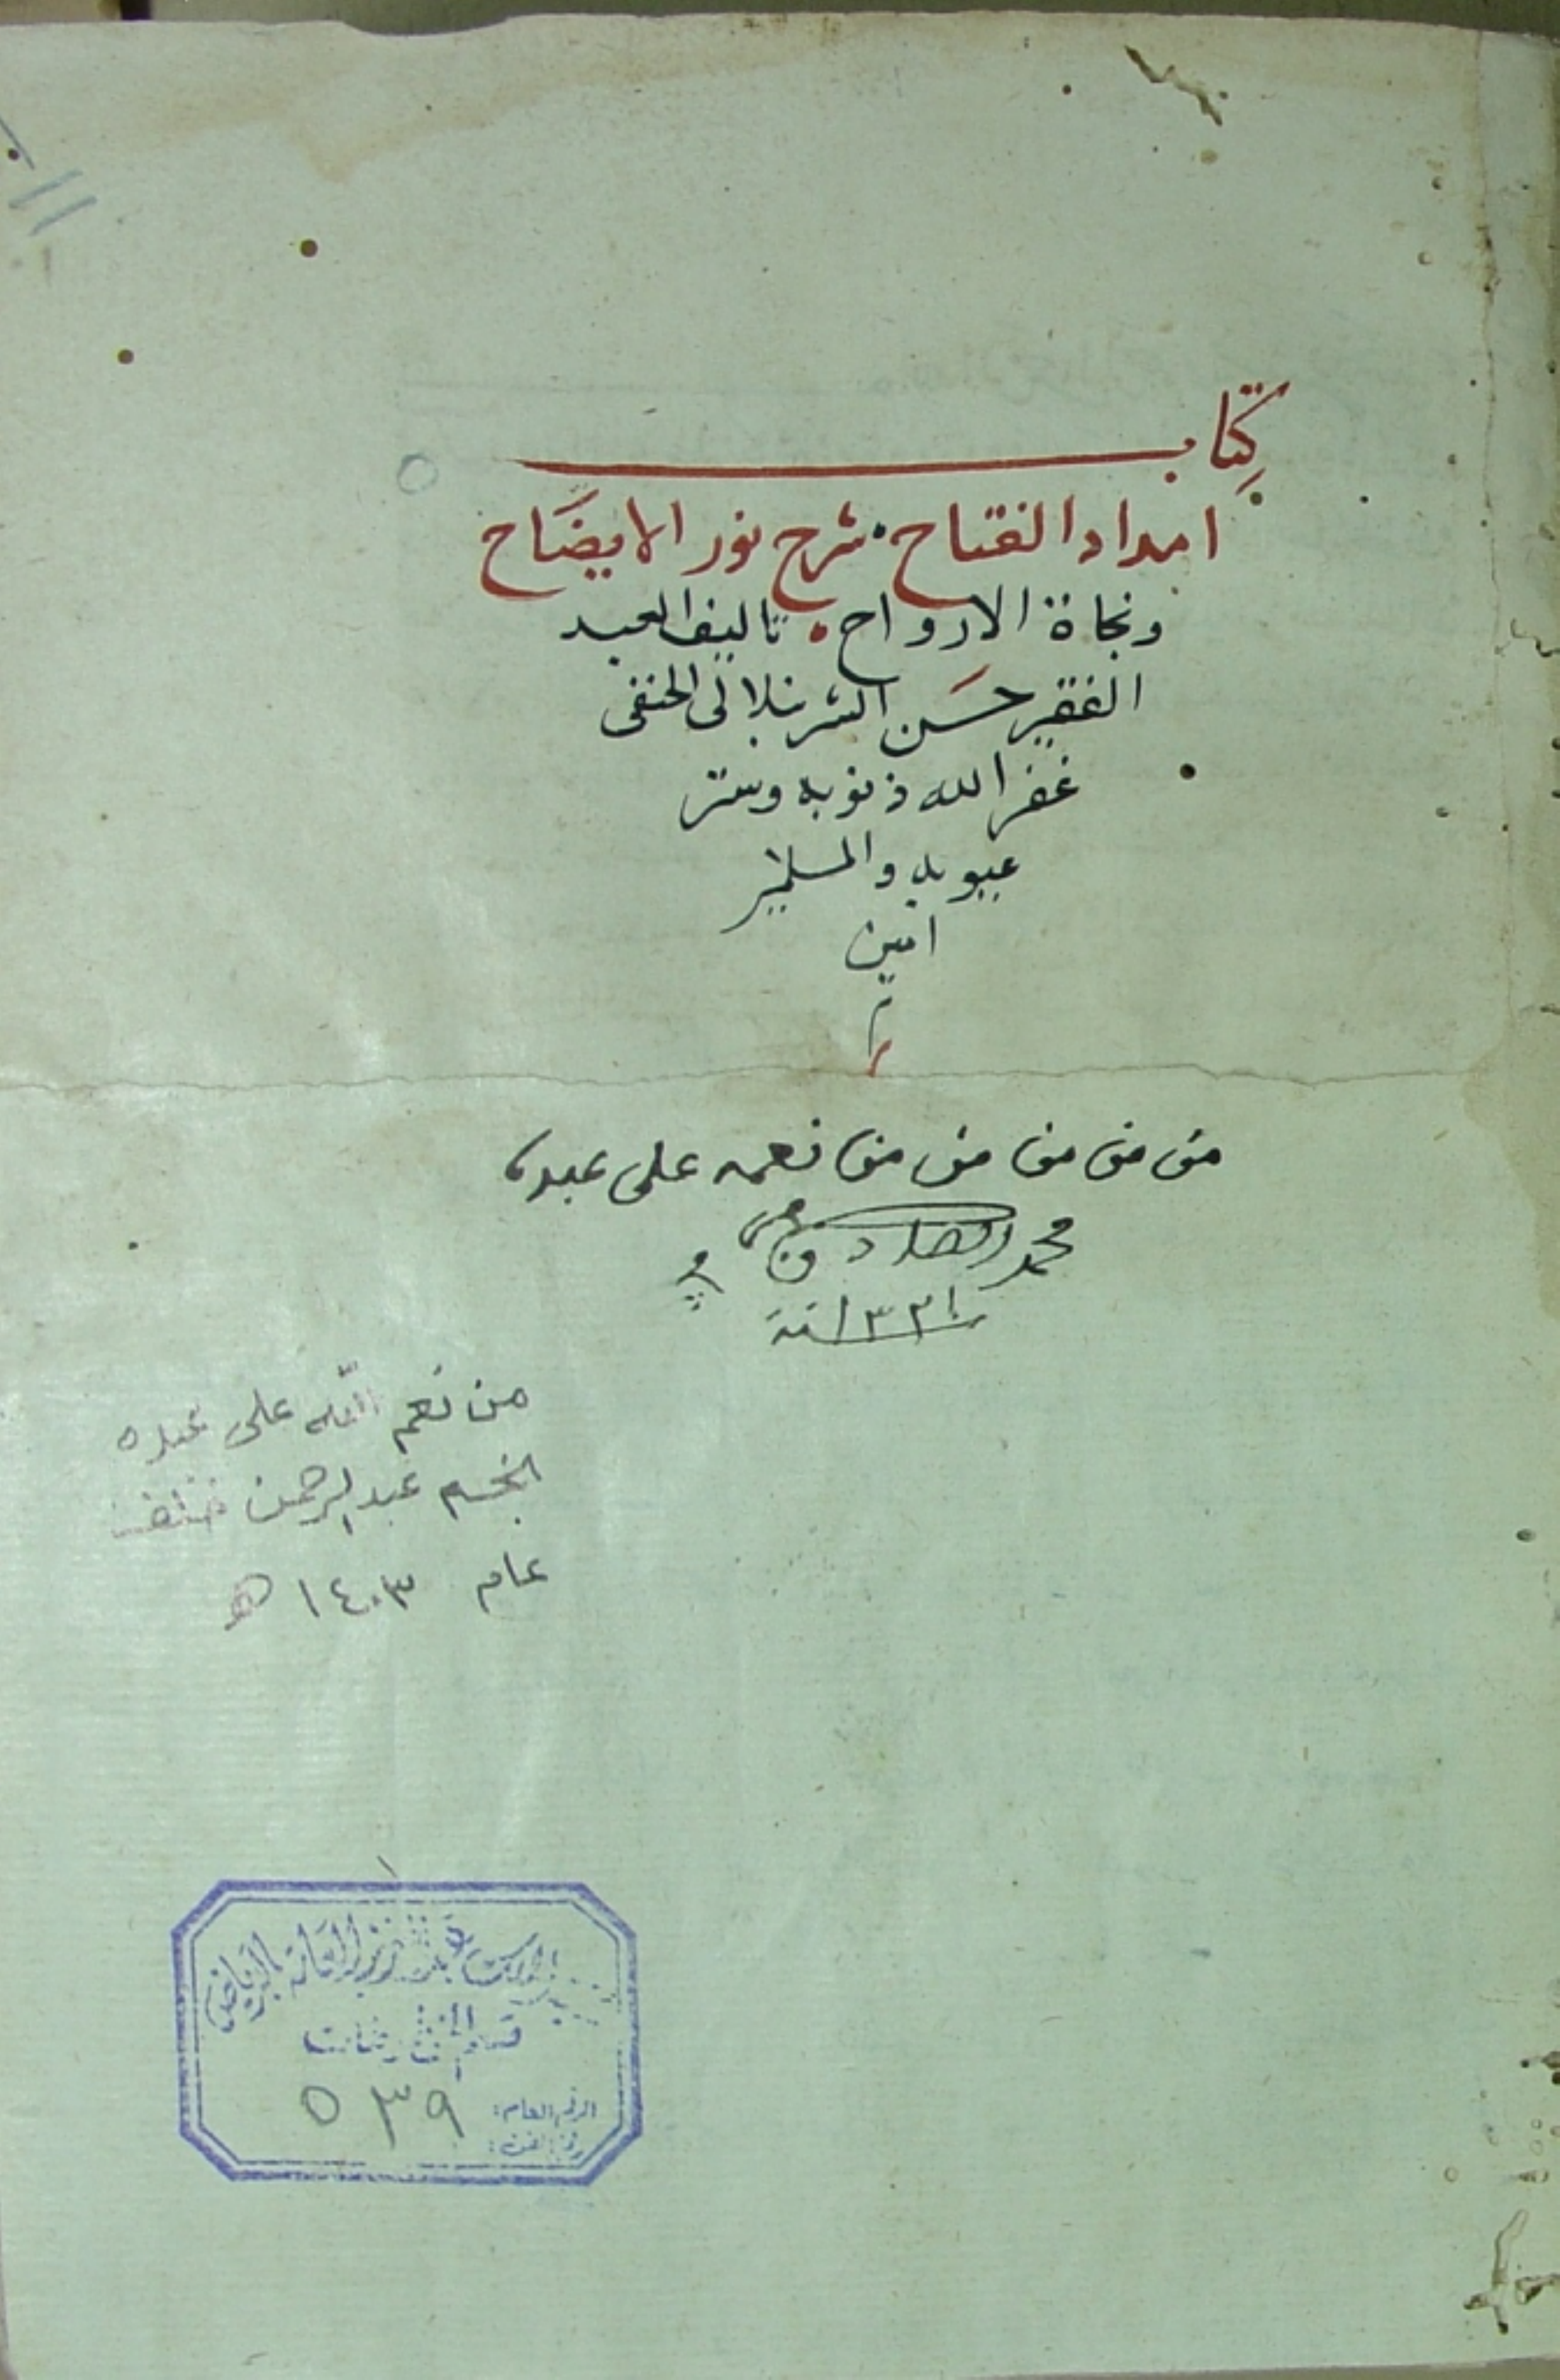 كتاب
امداد الفتاح شرح نور الايضاح
ونجاة الارواح تاليف العبد
الفقير حسن الشرنبلالى الحنفى
غفر الله ذنوبه وستر
عيوبه والمسلمين
امين
من من من من من نعمه على عبده
محمد الصادق
من نعم الله على عبده
عبد الرحمن
عام ١٤٠٣ هـ
العامة بالرياض
قسم المخطوطات
الرقم العام: ٥٣٩
رقم الفن: